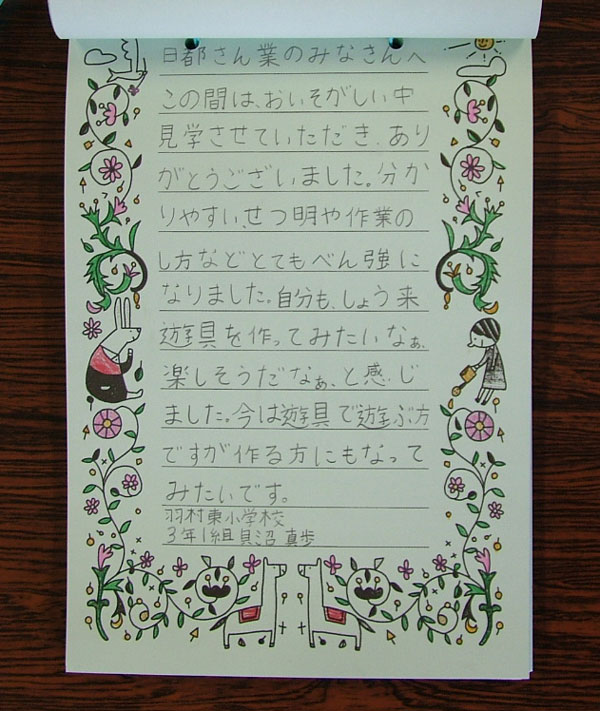 日都さん業のみなさんへ
この間は、おいそがしい中
見学させていただき、あり
がとうございました。分か
りやすい、せつ明や作業の
し方などとてもべん強に
なりました。自分も、しょう来
遊具を作ってみたいなぁ、
楽しそうだなぁ、と感じ
ました。今は遊具で遊ぶ方
ですが作る方にもなって
みたいです。
羽村東小学校
3年1組貝沼 真歩